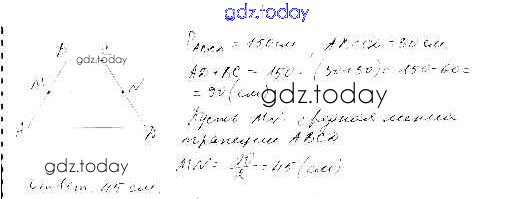 gdz.today
P_ABCD = 150 см, AB = CD = 30 см
AD + BC = 150 - (30+30) = 150 - 60 =
= 90 (см)
gdz.today
Пусть MN средняя линия
трапеции ABCD
MN = 90/2 = 45 (см)
B C
M N
A D
gdz.today
Ответ: 45 см.